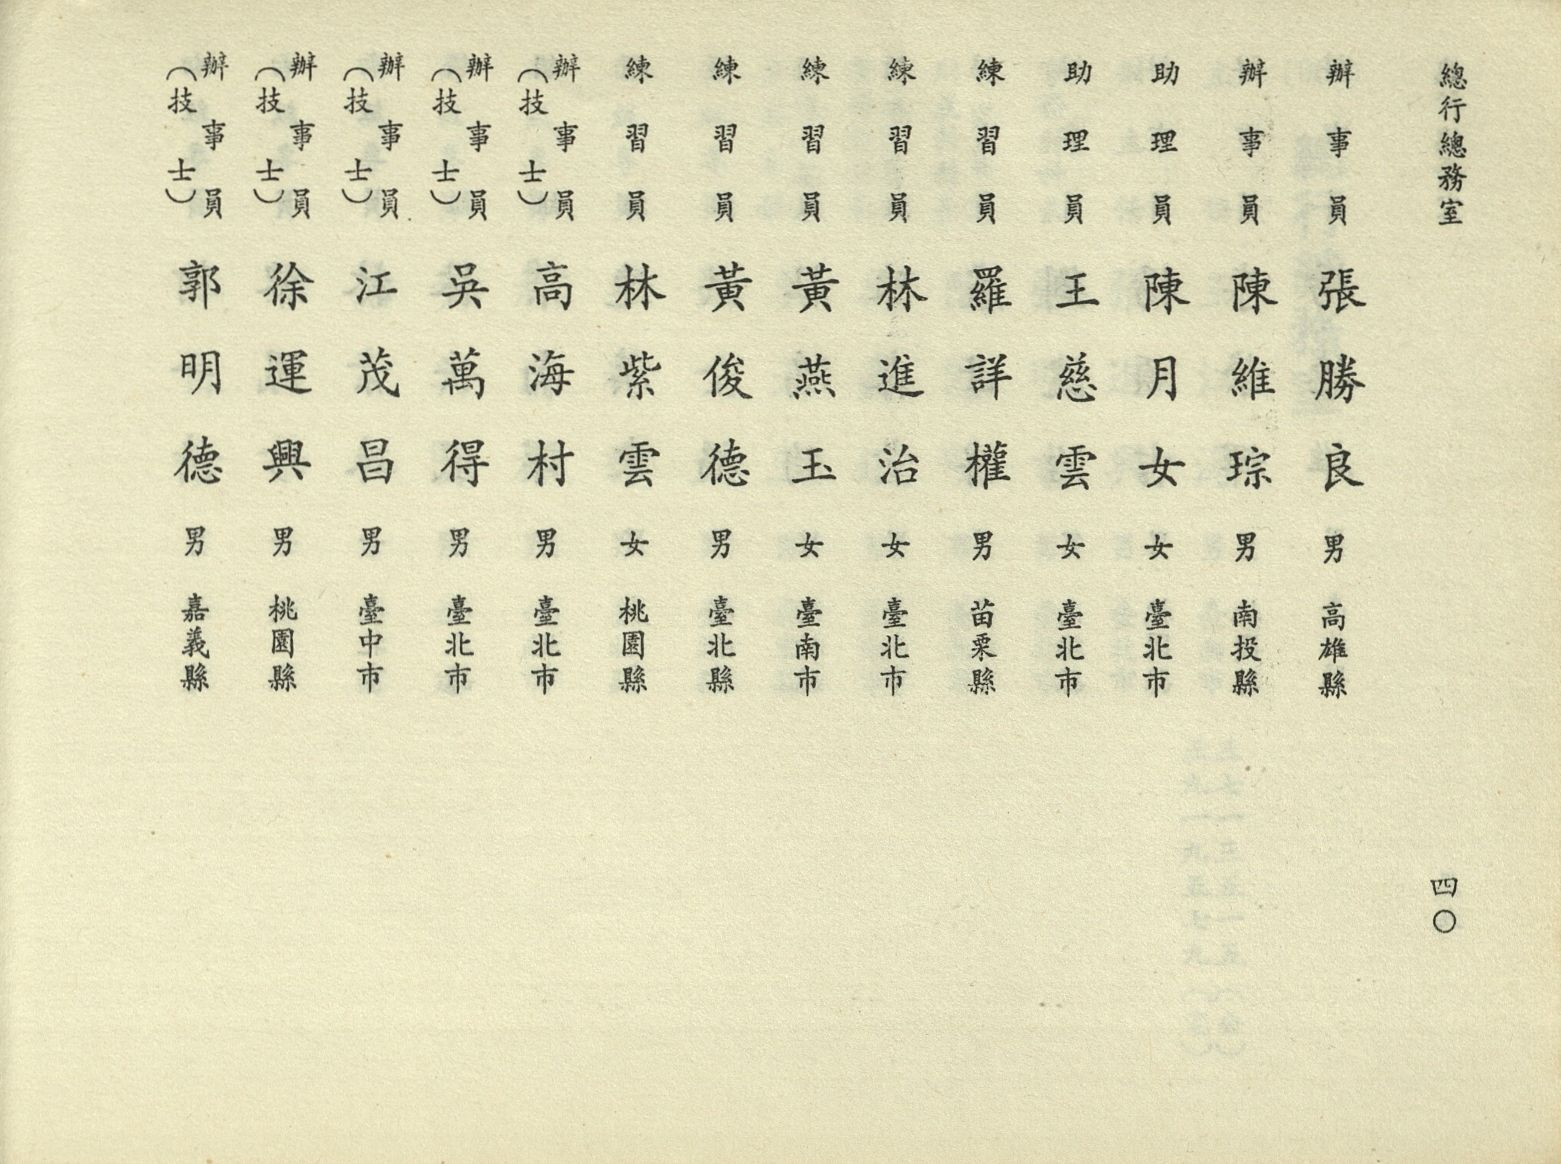 總行總務室
四〇
辦事員 張勝良 男 高雄縣
辦事員 陳維琮 男 南投縣
助理員 陳月女 女 臺北市
助理員 王慈雲 女 臺北市
練習員 羅詳權 男 苗栗縣
練習員 林進治 女 臺北市
練習員 黃燕玉 女 臺南市
練習員 黃俊德 男 臺北縣
練習員 林紫雲 女 桃園縣
辦事員（技士） 高海村 男 臺北市
辦事員（技士） 吳萬得 男 臺北市
辦事員（技士） 江茂昌 男 臺中市
辦事員（技士） 徐運興 男 桃園縣
辦事員（技士） 郭明德 男 嘉義縣